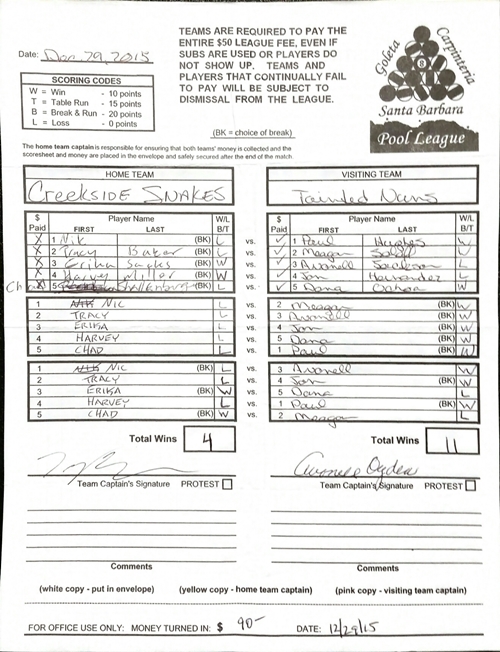 TEAMS ARE REQUIRED TO PAY THE
ENTIRE $50 LEAGUE FEE, EVEN IF
SUBS ARE USED OR PLAYERS DO
NOT SHOW UP. TEAMS AND
PLAYERS THAT CONTINUALLY FAIL
TO PAY WILL BE SUBJECT TO
DISMISSAL FROM THE LEAGUE.
Date: Dec 29, 2015
SCORING CODES
W = Win - 10 points
T = Table Run - 15 points
B = Break & Run - 20 points
L = Loss - 0 points
(BK = choice of break)
Goleta Carpinteria
8
Santa Barbara
Pool League
The home team captain is responsible for ensuring that both teams' money is collected and the
scoresheet and money are placed in the envelope and safely secured after the end of the match.
HOME TEAM VISITING TEAM
Creekside SNAKES Tainted Nuns
$ Paid Player Name FIRST LAST W/L B/T $ Paid Player Name FIRST LAST W/L B/T
X 1 Nik (BK) L vs. ✓ 1 Paul Hughes W
X 2 Tracy Baker (BK) L vs. ✓ 2 Meagan W
X 3 Erika (BK) W vs. ✓ 3 Avonell L
X 4 Harvey Miller (BK) W vs. ✓ 4 Jon Hernandez L
X 5 (BK) L vs. ✓ 5 Dana Ochoa W
1 NIC L vs. 2 Meagan (BK) W
2 TRACY L vs. 3 Avonell (BK) W
3 ERIKA L vs. 4 Jon (BK) W
4 HARVEY L vs. 5 Dana (BK) W
5 CHAD L vs. 1 Paul (BK) W
1 NIC (BK) L vs. 3 Avonell W
2 TRACY L vs. 4 Jon (BK) W
3 ERIKA (BK) W vs. 5 Dana L
4 HARVEY L vs. 1 Paul (BK) W
5 CHAD (BK) W vs. 2 Meagan L
Total Wins 4 Total Wins 11
Avonell Ogden
Team Captain's Signature PROTEST Team Captain's Signature PROTEST
Comments Comments
(white copy - put in envelope) (yellow copy - home team captain) (pink copy - visiting team captain)
FOR OFFICE USE ONLY: MONEY TURNED IN: $ 90- DATE: 12/29/15